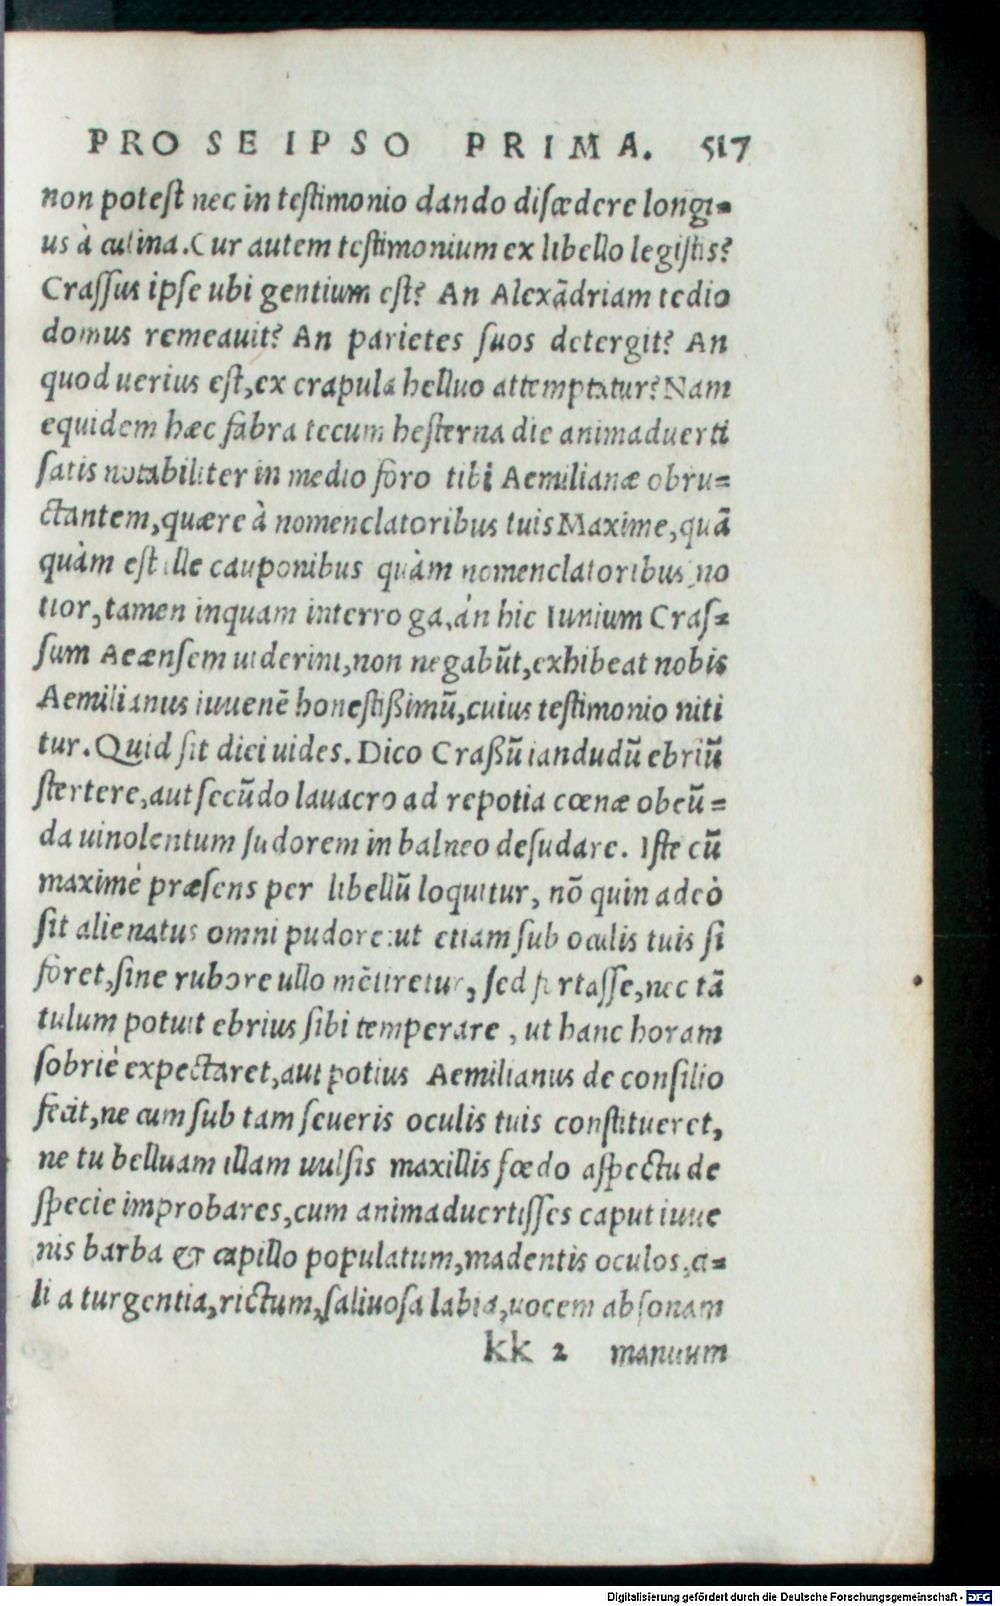 PRO SE IPSO PRIMA. 517
non potest nec in testimonio dando discedere longi-
us à culina. Cur autem testimonium ex libello legistis?
Crassus ipse ubi gentium est? An Alexãdriam tedio
domus remeauit? An parietes suos detergit? An
quod uerius est, ex crapula helluo attemptatur? Nam
equidem hæc sabra tecum hesterna die animaduerti
satis notabiliter in medio foro tibi Aemilianæ obru-
ctantem, quære à nomenclatoribus tuis Maxime, quã
quàm est ille cauponibus quàm nomenclatoribus no
tior, tamen inquam interroga, àn hic Iunium Cras-
sum Aeænsem uiderint, non negabũt, exhibeat nobis
Aemilianus iuuenẽ honestißimũ, cuius testimonio niti
tur. Quid sit diei uides. Dico Craßũ iandudũ ebriũ
stertere, aut secũdo lauacro ad repotia cœnæ obeũ-
da uinolentum sudorem in balneo desudare. Iste cũ
maximè præsens per libellũ loquitur, nõ quin adeò
sit alienatus omni pudore: ut etiam sub oculis tuis si
foret, sine rubore ullo mẽtiretur, sed fortasse, nec tã
tulum potuit ebrius sibi temperare, ut hanc horam
sobriè expectaret, aut potius Aemilianus de consilio
fecit, ne cum sub tam seueris oculis tuis constitueret,
ne tu belluam illam uulsis maxillis fœdo aspectu de
specie improbares, cum animaduertisses caput iuue
nis barba & capillo populatum, madentis oculos, ci-
li a turgentia, rictum, saliuosa labia, uocem absonam
kk 2 manuum
Digitalisierung gefördert durch die Deutsche Forschungsgemeinschaft - DFG